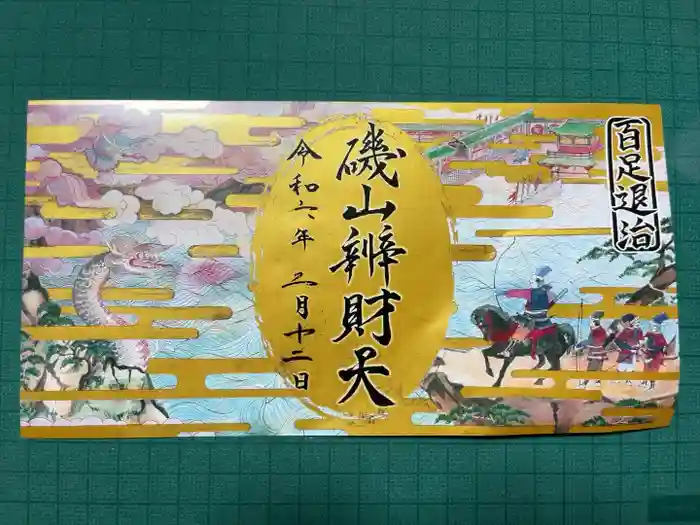 百足退治
磯山辨財天
令和六年三月十二日